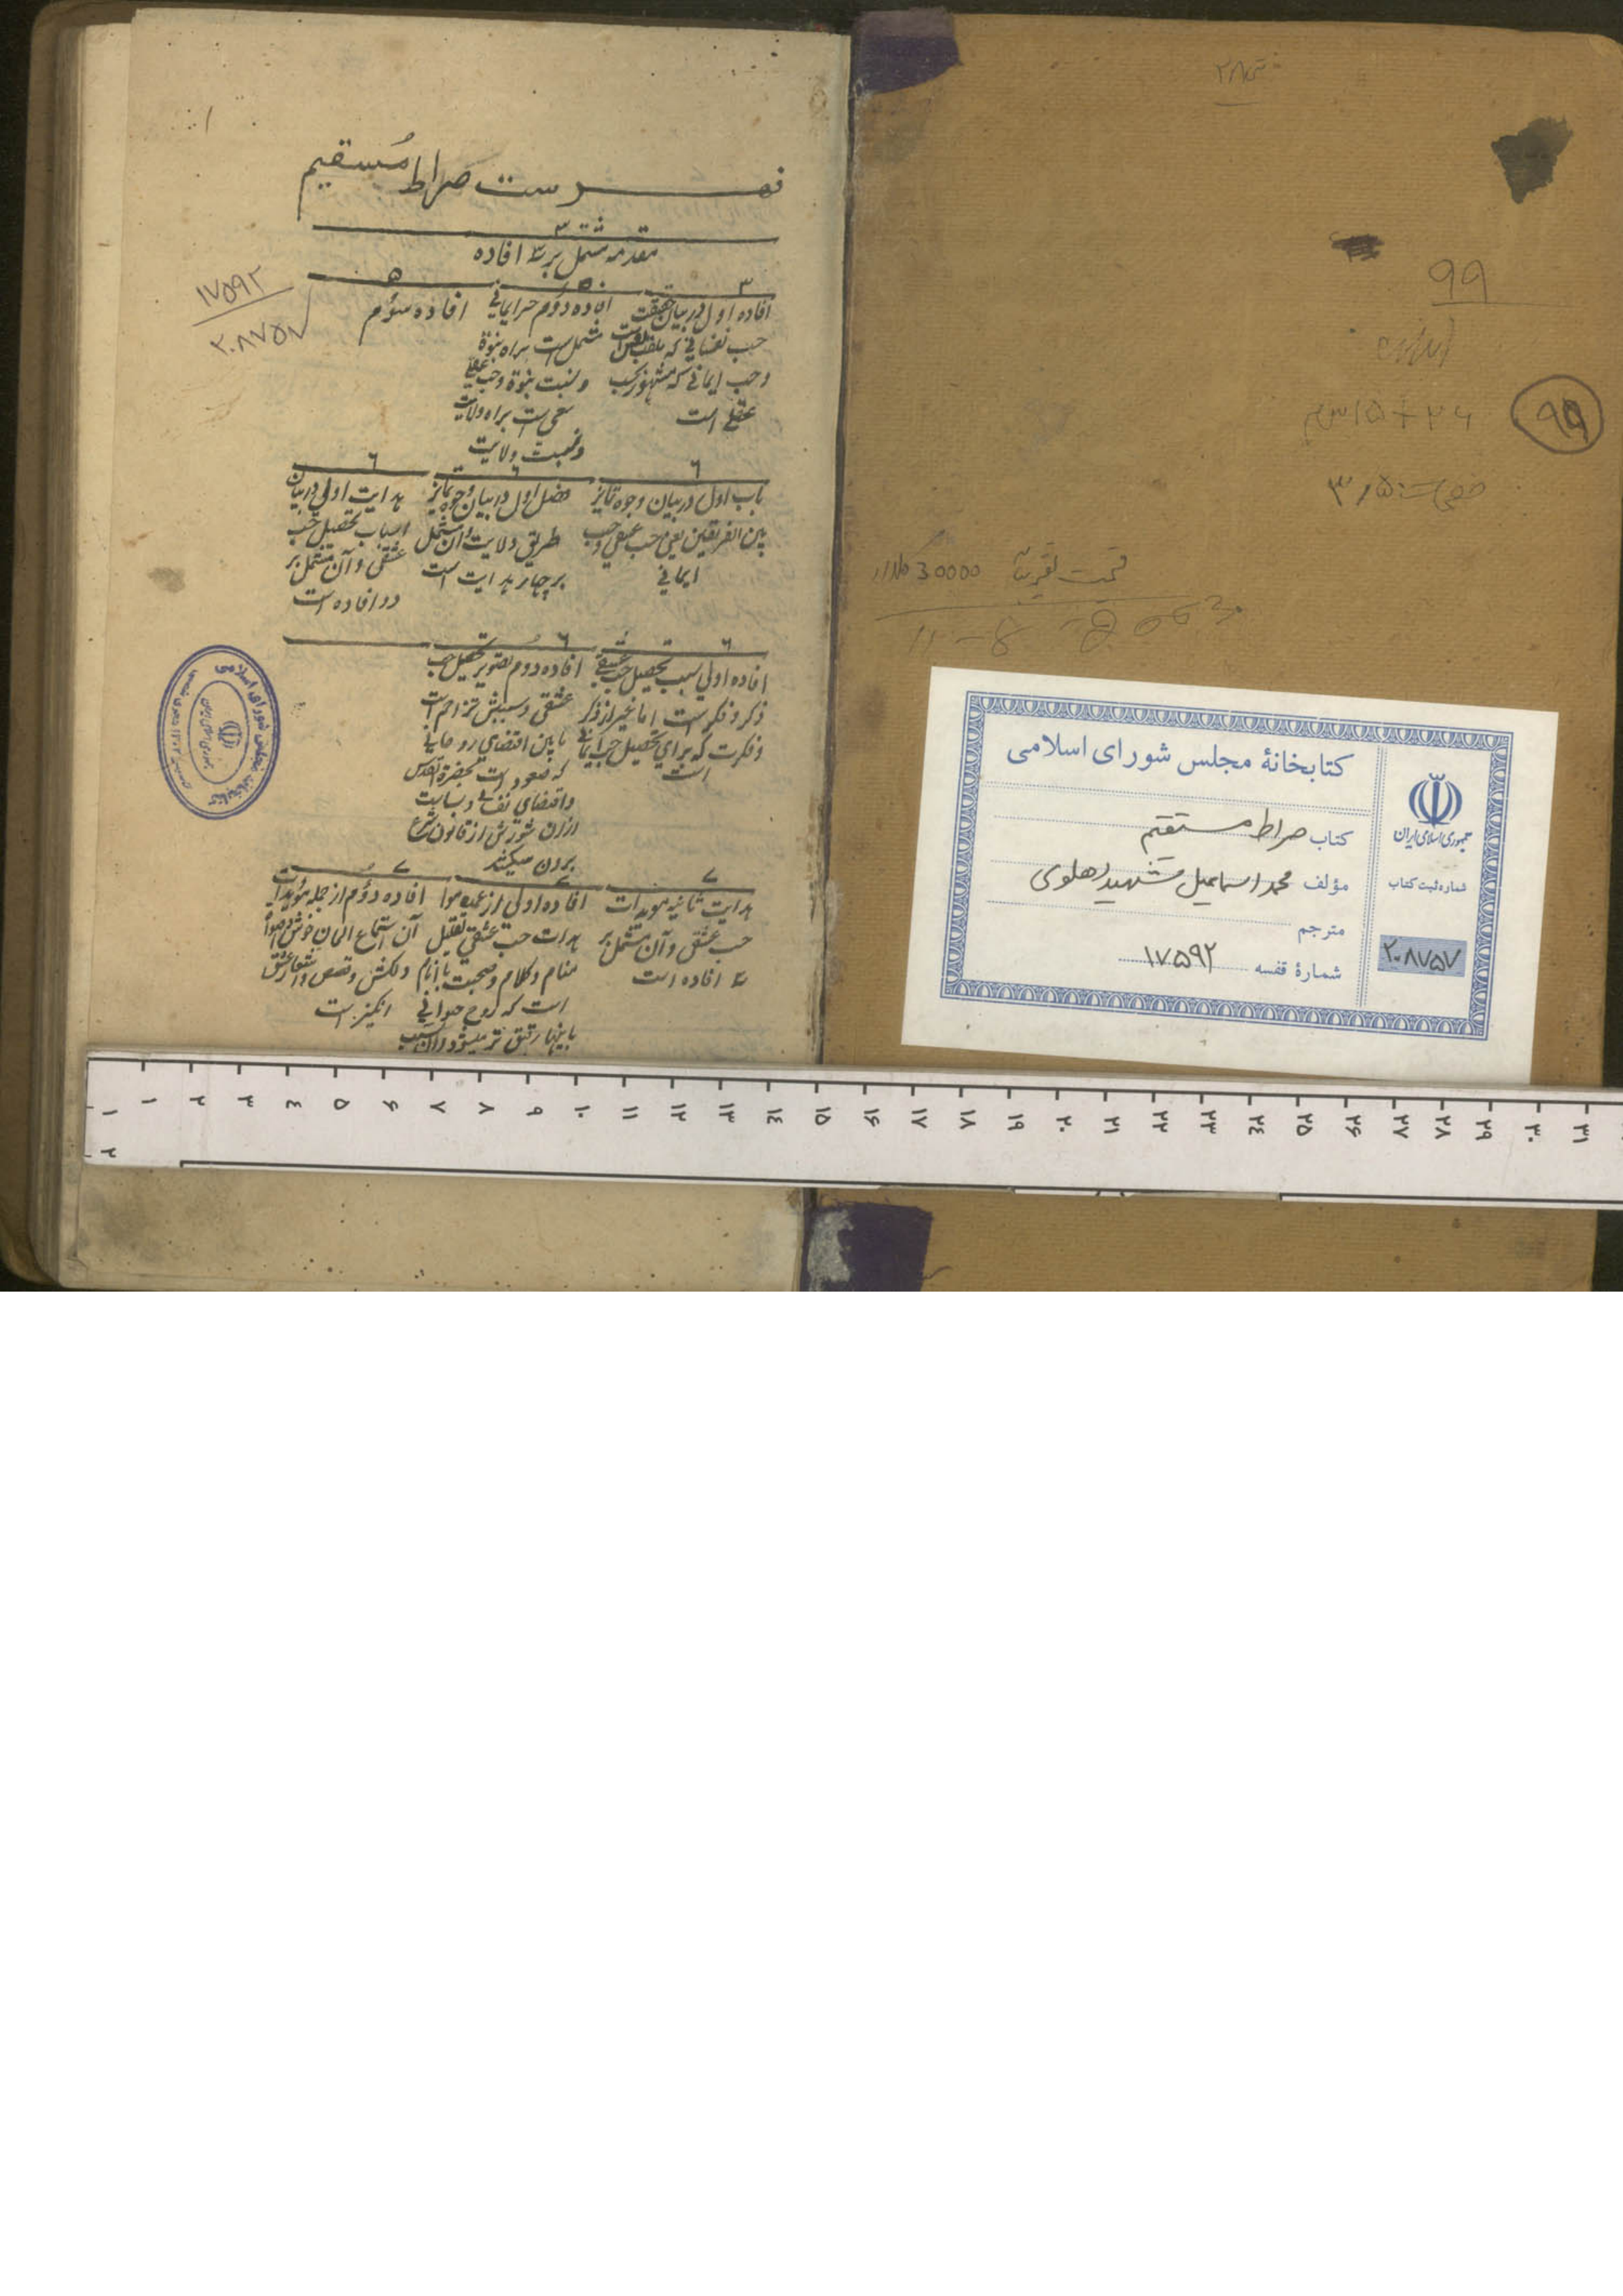 فهرست صراط مُستقیم
۳
مقدمه مشتمل بر سه افاده
۳
افاده اول در بیان حقیقت
حب نفسانی که ملقب بعشق است
و حب ایمانی که مشهور بحب
عقلی است
۵
افاده دوم حب ایمانی
مشتمل است براه نبوة
و نسبت نبوة و حب عقلی
است براه ولایت
و نسبت ولایت
۵
افاده سوُم
٦
باب اول در بیان وجوه تمایز
بین الفریقین یعنی حب عشقی و حب
ایمانی
٦
فصل اول در بیان وجوه تمایز
طریق ولایت و آن مشتمل
بر چهار هدایت است
٦
هدایت اولی در بیان
اسباب تحصیل حب
عشقی و آن مشتمل بر
دو افاده است
٦
افاده اولی سبب تحصیل حب عشقی
ذکر و فکر است اما غیر از ذکر
و فکرت که برای تحصیل حب ایمانی
است
٦
افاده دوم تصویر تحصیل حب
عشقی و سببش تزاحم است
ما بین اقتضای روحانی
که صعود است بحضرة اقدس
و اقتضای نفس
ازان شورش از قانون شرع
برون میکند
۷
هدایت ثانیه مویدات
حب عشقی و آن مشتمل بر
سه افاده است
۷
افاده اولی از عمده مو
یدات حب عشقی تقلیل
منام و کلام و صحبت با انام
است که روح حیوانی
باینها رقیق تر میشود و آن سبب
۷
افاده دوُم از جمله مؤیدات
آن استماع الحان خوش و اصوات
دلکش و قصص و اشعار عشق
انگیز است
۱۷۵۹۲
۲۰۸۷۵۷
۲۸
۹۹
۹۹
۲۶+۱۵ سم
۳/۵
قیمت تقریباً 30000
کتابخانهٔ مجلس شورای اسلامی
کتاب صراط مستقیم
مؤلف محمد اسماعیل شهید دهلوی
مترجم
شمارهٔ قفسه ۱۷۵۹۲
جمهوری اسلامی ایران
شماره ثبت کتاب
۲۰۸۷۵۷
۱ ۲ ۳ ٤ ۵ ۶ ۷ ۸ ۹ ۱۰ ۱۱ ۱۲ ۱۳ ۱٤ ۱۵ ۱۶ ۱۷ ۱۸ ۱۹ ۲۰ ۲۱ ۲۲ ۲۳ ۲٤ ۲۵ ۲۶ ۲۷ ۲۸ ۲۹ ۳۰ ۳۱
۱
۲